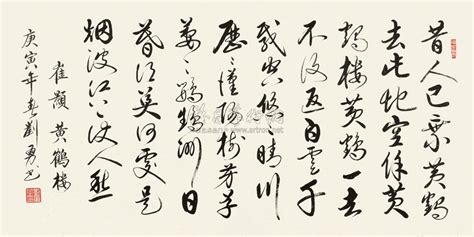 昔人已乘黄鹤
去此地空余黄
鹤楼黄鹤一去
不复返白云千
载空悠〻晴川
历〻汉阳树芳草
萋〻鹦鹉洲日
暮乡关何处是
烟波江上使人愁
崔顥黄鶴楼
庚寅年春劉勇书